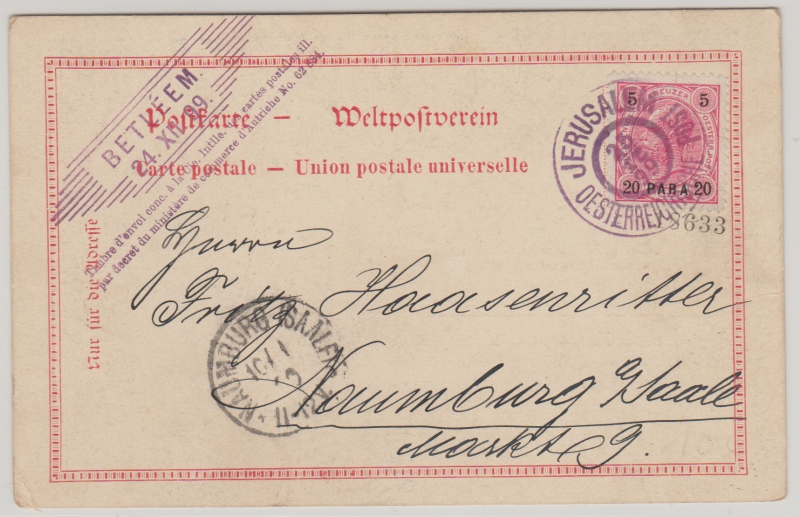 BETLÉEM.
24. XII. 99.
Timbre d'envoi conc. à la cartes postales ill.
par decret du ministère de commerce d'Autriche No. 62
Postkarte — Weltpostverein
Carte postale — Union postale universelle
Nur für die Adresse
5 KREUZER 5
20 PARA 20
JERUSALEM
OESTERREICHISCHE
18633
Herrn
Fritz Haasenritter
Naumburg a/Saale
Markt 9.
NAUMBURG (SAALE)